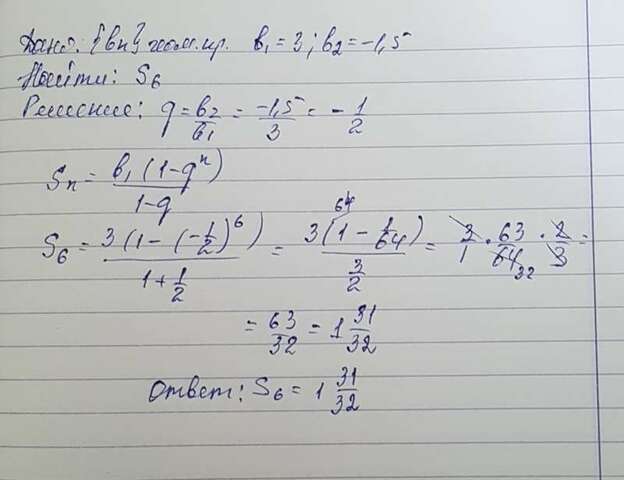 Дано: {bn} геом.пр. b₁ = 3; b₂ = -1,5
Найти: S₆
Решение: q = b₂/b₁ = -1,5/3 = - 1/2
Sn = b₁(1-qⁿ)/1-q
S₆ = 3(1-(-1/2)⁶)/1+1/2 = 3(1 - 1/64)/3/2 = 3/1 · 63/64 32 · 2/3 =
= 63/32 = 1 31/32
Ответ: S₆ = 1 31/32